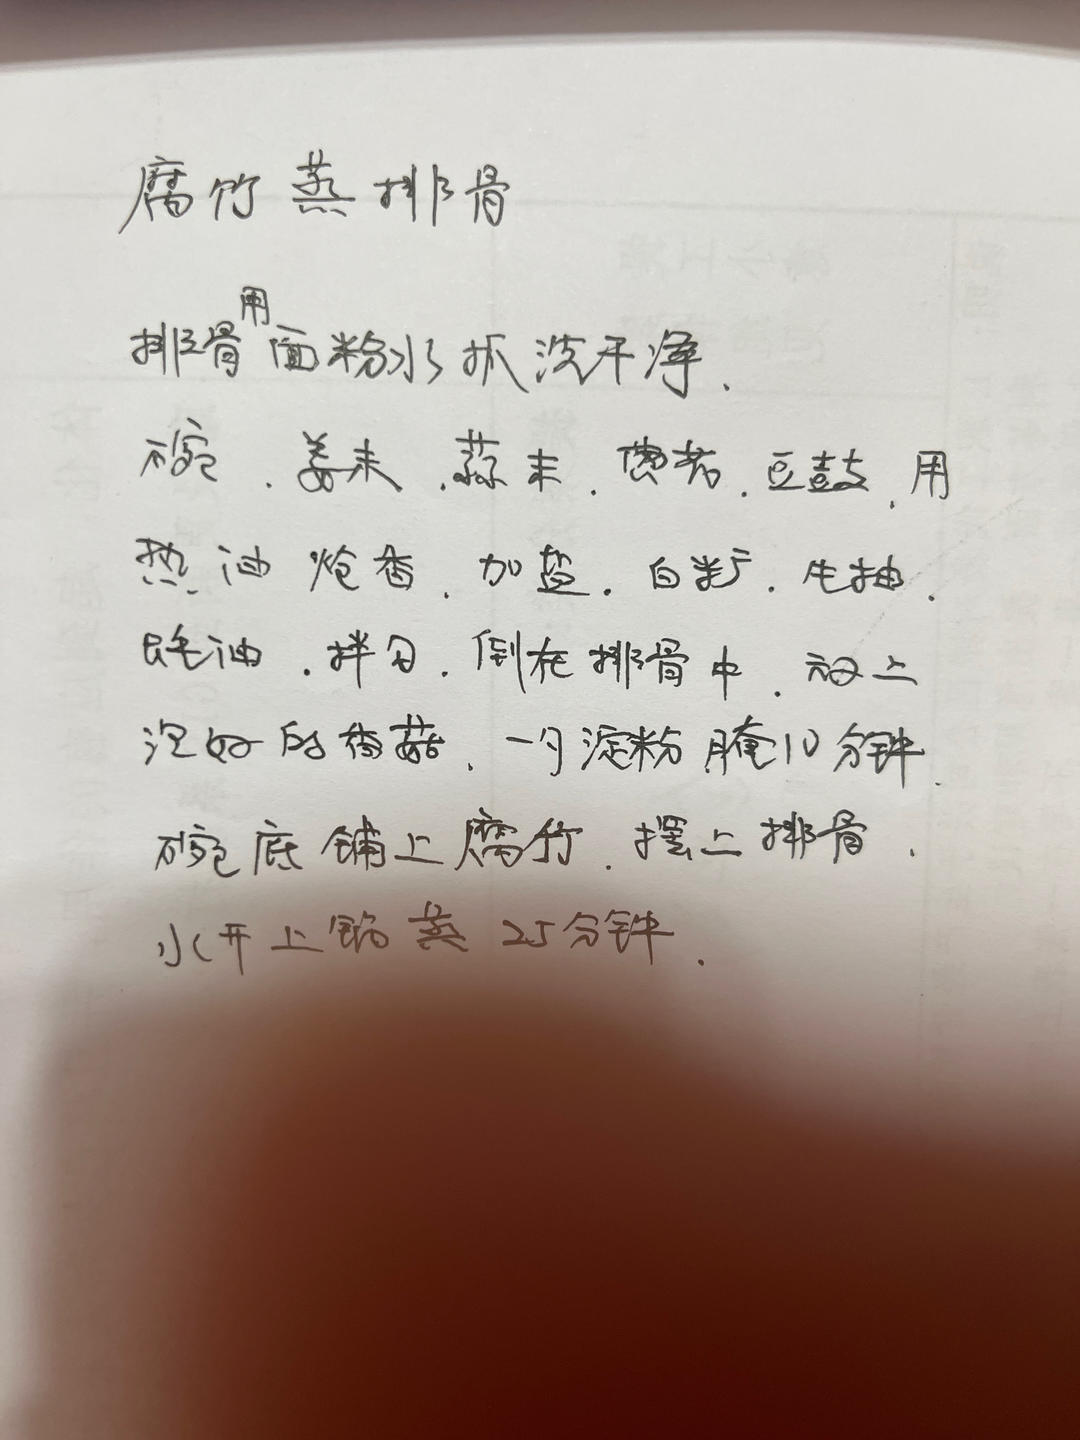 腐竹蒸排骨
排骨用面粉水抓洗干净.
碗.姜末.蒜末.豆鼓.用
热油炝香.加盐.白.生抽.
蚝油.拌匀.倒在排骨中.放上
泡好的香菇.一勺淀粉腌10分钟.
碗底铺上腐竹.摆上排骨.
水开上锅蒸25分钟.